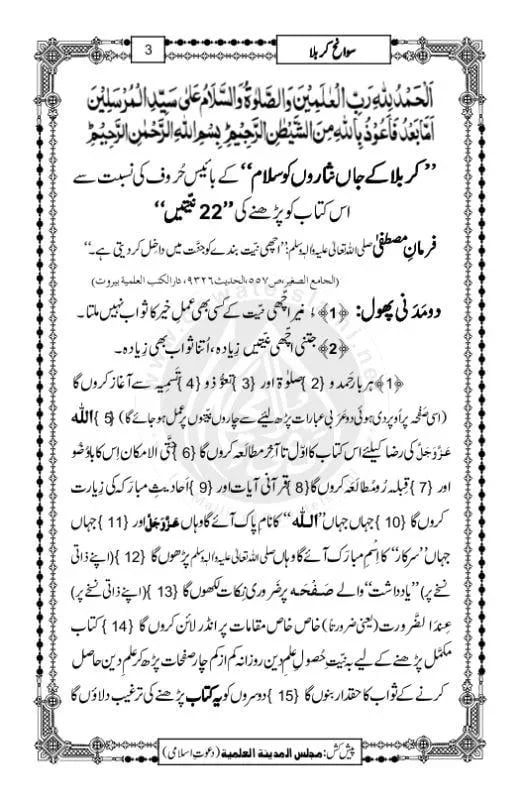 سوانح کربلا
3
اَلْحَمْدُ لِلّٰهِ رَبِّ الْعٰلَمِیْنَ وَالصَّلٰوةُ وَالسَّلَامُ عَلٰی سَیِّدِ الْمُرْسَلِیْنَ
اَمَّا بَعْدُ فَاَعُوْذُ بِاللّٰهِ مِنَ الشَّیْطٰنِ الرَّجِیْمِ ؕ بِسْمِ اللّٰهِ الرَّحْمٰنِ الرَّحِیْمِ ؕ
’’کربلا کے جاں نثاروں کو سلام‘‘ کے بائیس حُروف کی نسبت سے
اس کتاب کو پڑھنے کی ’’22 نیّتیں‘‘
فرمانِ مصطفٰی صلی اللہ تعالٰی علیہ والہٖ وسلم: ’’اچھی نیّت بندے کو جنّت میں داخل کر دیتی ہے۔‘‘
(الجامع الصغیر، ص ۵۵۷، الحدیث ۹۳۲۶، دار الکتب العلمیة بیروت)
دو مَدَنی پھول: ﴿1﴾ بغیر اچھی نیّت کے کسی بھی عملِ خیر کا ثواب نہیں ملتا۔
﴿2﴾ جتنی اچھی نیّتیں زِیادہ، اُتنا ثواب بھی زِیادہ۔
﴿1﴾ ہر بار حَمد و {2} صلوٰۃ اور {3} تعوُّذ و {4} تَسمِیہ سے آغاز کروں گا
(اسی صَفْحَہ پر اُوپر دی ہوئی دو عَرَبی عبارات پڑھ لینے سے چاروں نیّتوں پر عمل ہو جائے گا) {5} اللّٰہ
عَزَّوَجَلَّ کی رضا کیلئے اس کتاب کا اوّل تا آخِر مطالَعہ کروں گا {6} حتَّی الْامکان اِس کا باوُضُو
اور {7} قِبلہ رُو مُطالَعَہ کروں گا {8} قرآنی آیات اور {9} اَحادیثِ مبارَکہ کی زِیارت
کروں گا {10} جہاں جہاں ’’اللّٰہ‘‘ کا نام پاک آئے گا وہاں عَزَّوَجَلَّ اور {11} جہاں
جہاں ’’سرکار‘‘ کا اِسْمِ مبارَک آئے گا وہاں صلی اللہ تعالٰی علیہ والہٖ وسلم پڑھوں گا {12} (اپنے ذاتی
نسخے پر) ’’یادداشت‘‘ والے صَفْحَہ پر ضَروری نِکات لکھوں گا {13} (اپنے ذاتی نسخے پر)
عِندَ الضَّرورت (یعنی ضرورتاً) خاص خاص مقامات پر انڈر لائن کروں گا {14} کتاب
مکمّل پڑھنے کے لیے بہ نیّتِ حُصولِ علمِ دین روزانہ کم از کم چار صفحات پڑھ کر علمِ دین حاصل
کرنے کے ثواب کا حقدار بنوں گا {15} دوسروں کو یہ کتاب پڑھنے کی ترغیب دلاؤں گا
پیش کش: مجلس المدینة العلمیة (دعوتِ اسلامی)